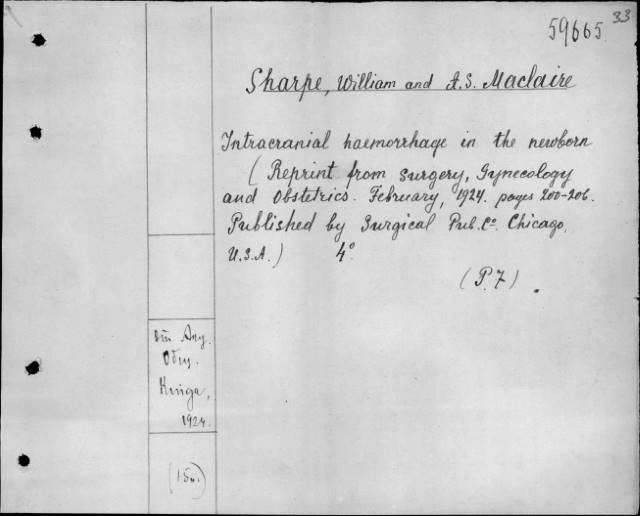 59665
33
Sharpe, William and A.S. Maclaire
Intracranial haemorrhage in the newborn
(Reprint from Surgery, Gynecology
and Obstetrics. February, 1924. pages 200-206.
Published by Surgical Pub. Co. Chicago,
U.S.A.) 4°
(P.7).
Книга,
1924.